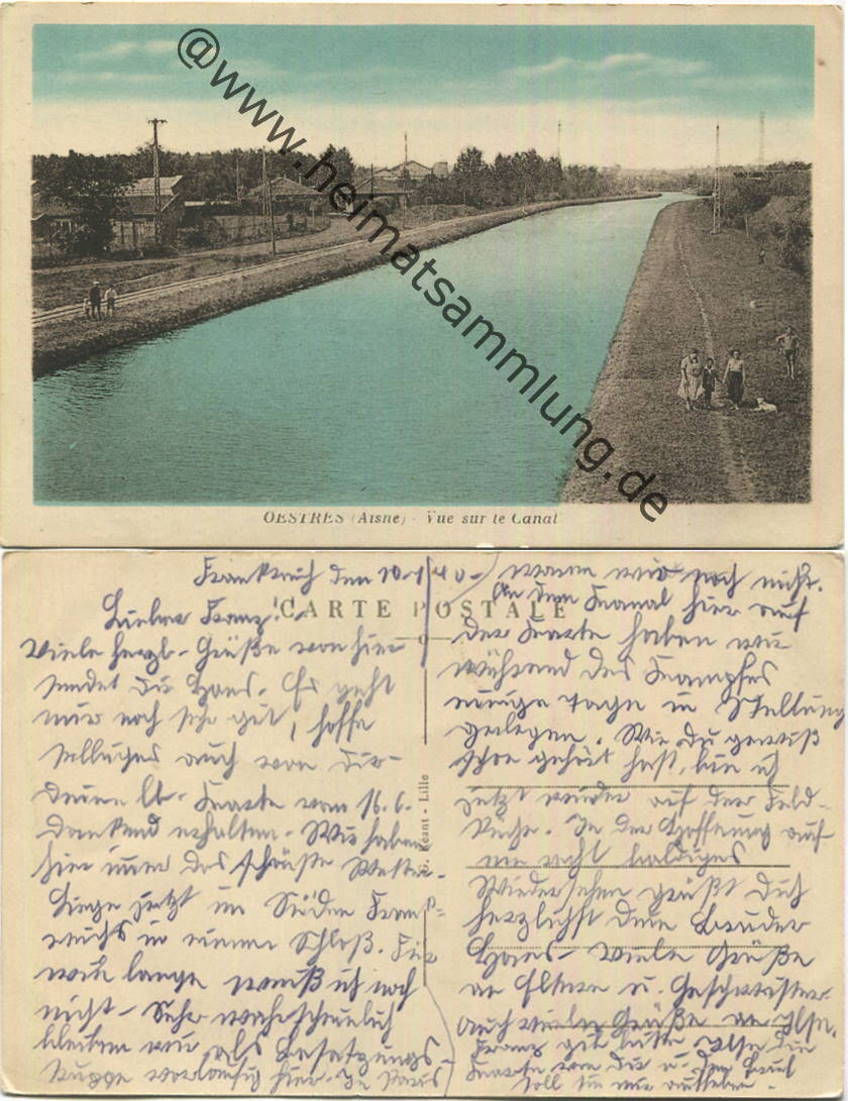 @www.heimatsammlung.de
OESTRES (Aisne) - Vue sur le Canal
CARTE POSTALE
Lille
Frankreich den 10.
Lieber Franz!
Viele herzl. Grüße von hier
sendet Dir Hans. Es geht
mir noch sehr gut, hoffe
selbiges auch von Dir.
Deine lb. Karte vom 16.6.
dankend erhalten. Wir haben
hier immer das schönste Wetter.
Liege jetzt im Süden Frank-
reichs in einem Schloß. Für
wie lange weiß ich noch
nicht. Sehr wahrscheinlich
bleiben wir als Besatzungs-
truppe vorläufig hier. In Paris
waren wir noch nicht.
An dem Kanal hier auf
der Karte haben wir
während des Kampfes
einige Tage in Stellung
gelegen. Wie Du gewiß
schon gehört hast, bin ich
jetzt wieder auf der Feld-
küche. In der Hoffnung auf
ein recht baldiges
Wiedersehen grüßt Dich
herzlichst Dein Bruder
Hans. Viele Grüße
an Eltern u. Geschwister.
Auch viele Grüße an Ilse.
Franz gib bitte Ilse die
Karte von Dir u.
soll sie mir aufheben.